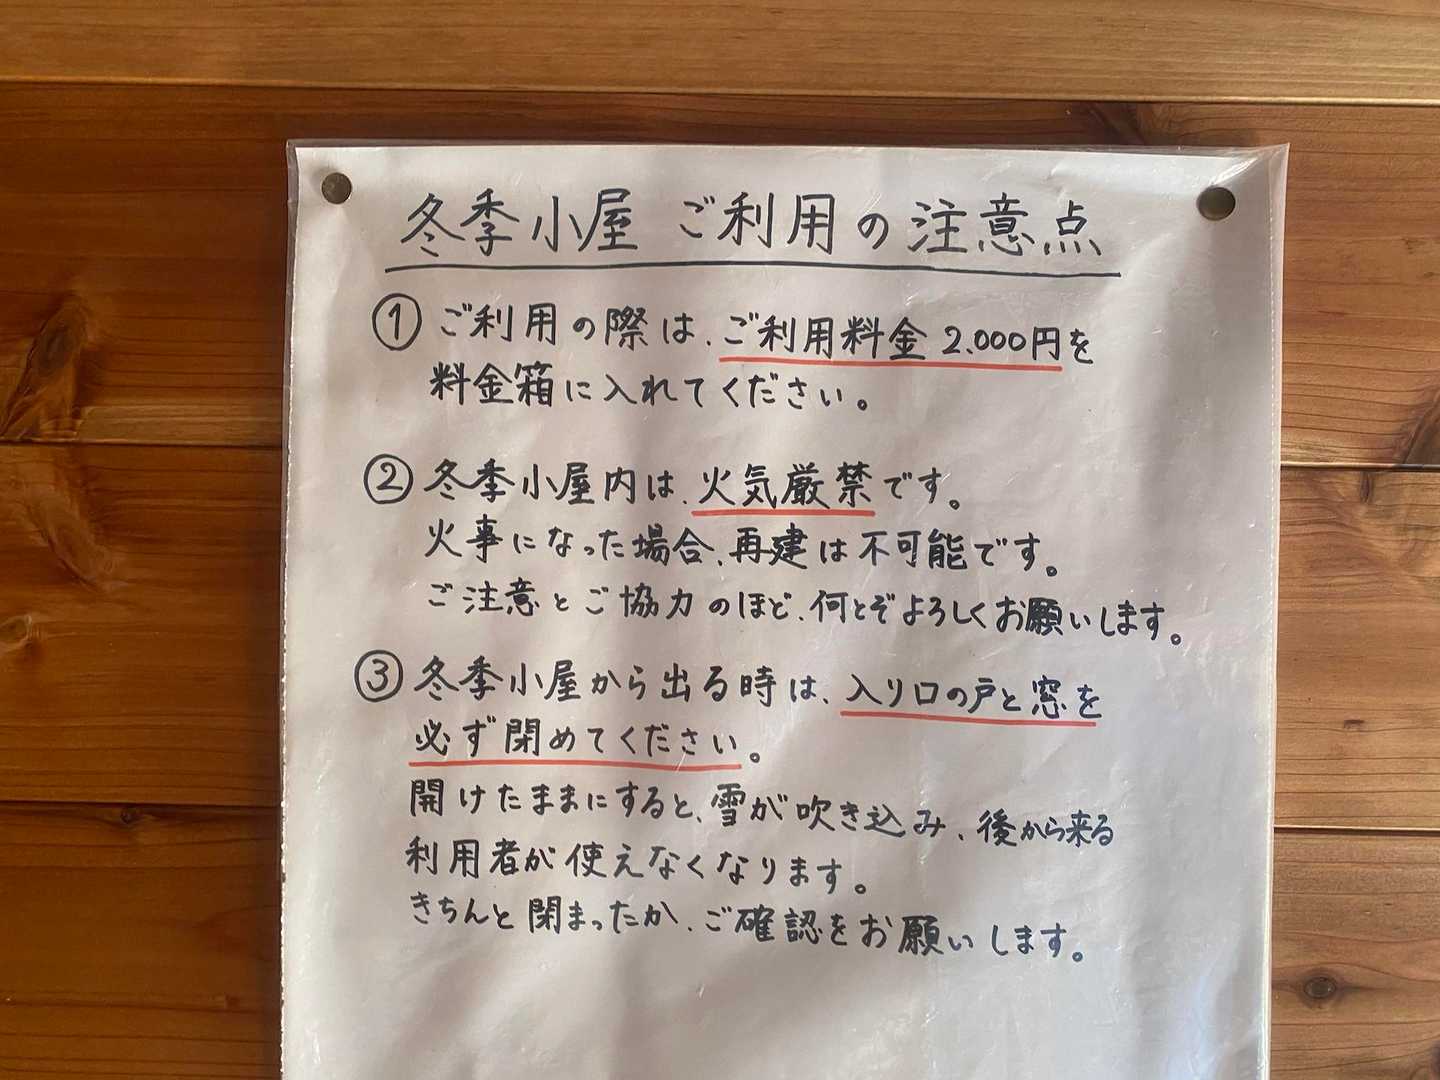 冬季小屋 ご利用の注意点
① ご利用の際は、ご利用料金 2,000円を
料金箱に入れてください。
② 冬季小屋内は、火気厳禁です。
火事になった場合、再建は不可能です。
ご注意とご協力のほど、何とぞよろしくお願いします。
③ 冬季小屋から出る時は、入り口の戸と窓を
必ず閉めてください。
開けたままにすると、雪が吹き込み、後から来る
利用者が使えなくなります。
きちんと閉まったか、ご確認をお願いします。